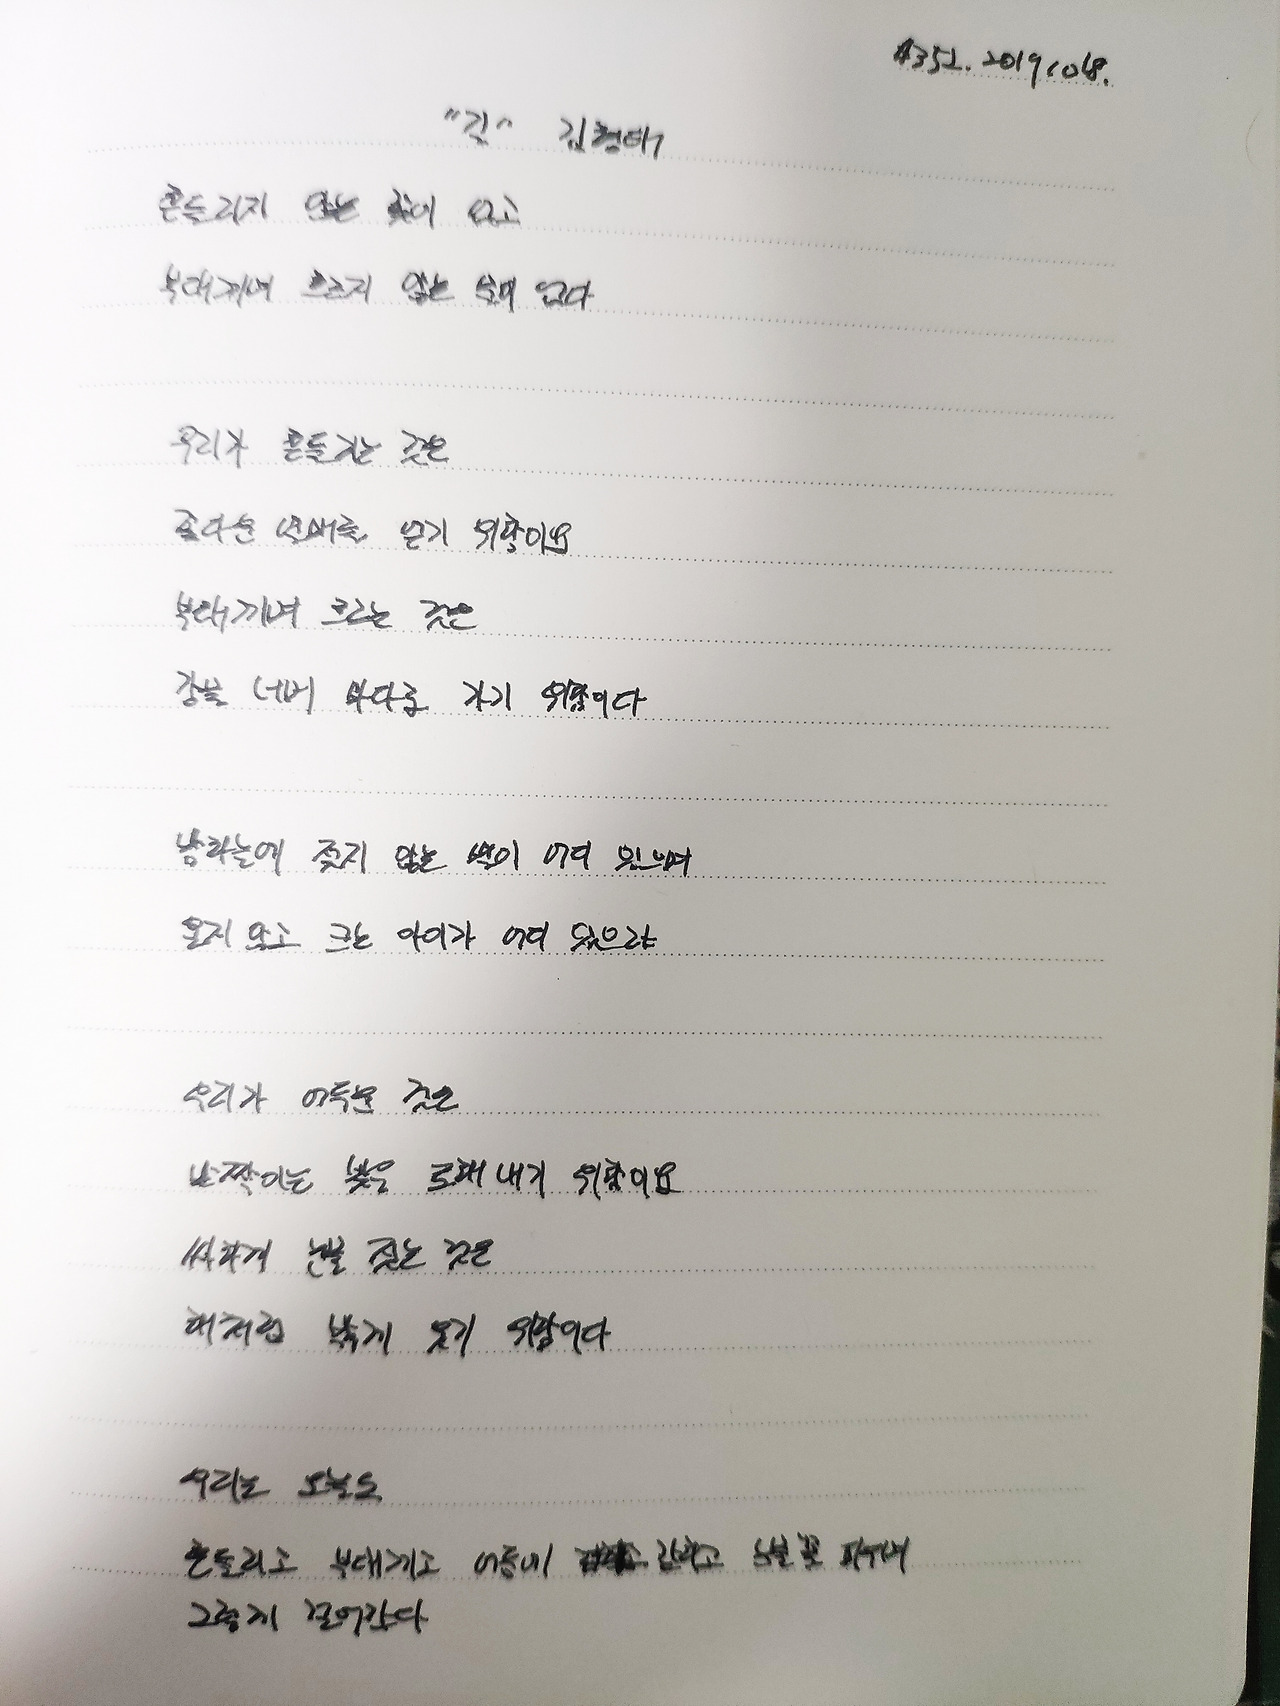 #352. 2019.10.18.
"길" 김형태
흔들리지 않는 꽃이 없고
부대끼며 흐르지 않는 물이 없다
우리가 흔들리는 것은
좋다란 열매를 얻기 위함이요
부대끼며 흐르는 것은
강물 너머 바다로 가기 위함이다
밤하늘에 젖지 않는 별이 어디 있으며
울지 않고 크는 아이가 어디 있으랴
우리가 어두운 것은
반짝이는 빛을 토해내기 위함이요
싸하게 눈물 짓는 것은
해처럼 밝게 웃기 위함이다
우리는 오늘도
흔들리고 부대끼고 어둠에 갇히고 눈물 꽃 피우며
그렇게 걸어간다